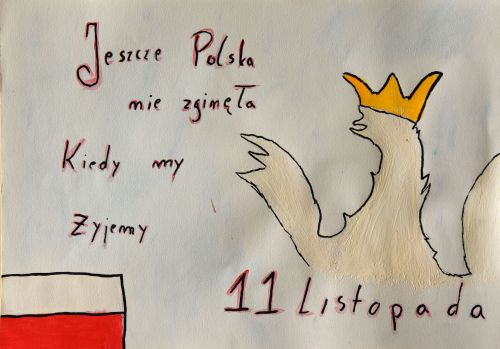 Jeszcze Polska
nie zginęła
Kiedy my
Żyjemy
11 Listopada